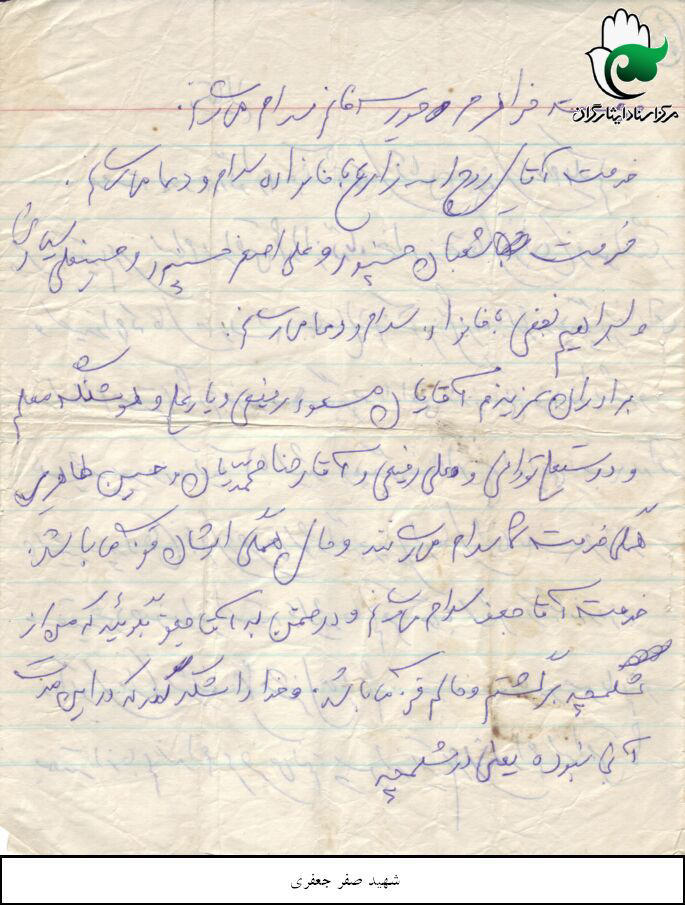 مرکز اسناد ایثارگران
خدمت خواهرم حوریه خانم سلام می‌رسانم.
خدمت آقای روح اله زارع با خانواده سلام و دعا می‌رسانم.
خدمت شعبان حسنپور و علی اصغر حسنپور و حسینعلی
و ابراهیم نجفی با خانواده سلام و دعا می‌رسانم.
برادران عزیزم آقایان مسعود رفیعی و یارعلی و هوشنگ معلم
و درستعلی توانی و علی رفیعی و آقا رضا محمدیان و حسین طاهری
همگی خدمت شما سلام می‌رسانند و حال همگی ایشان خوب می‌باشد.
خدمت آقا جعفر سلام می‌رسانم و در ضمن به آقا جعفر بگوئید که من از
شلمچه برگشتم و حالم خوب می‌باشد. و خدا را شکر که در این مدت
آبی نبوده یعنی در شلمچه
شهید صفر جعفری